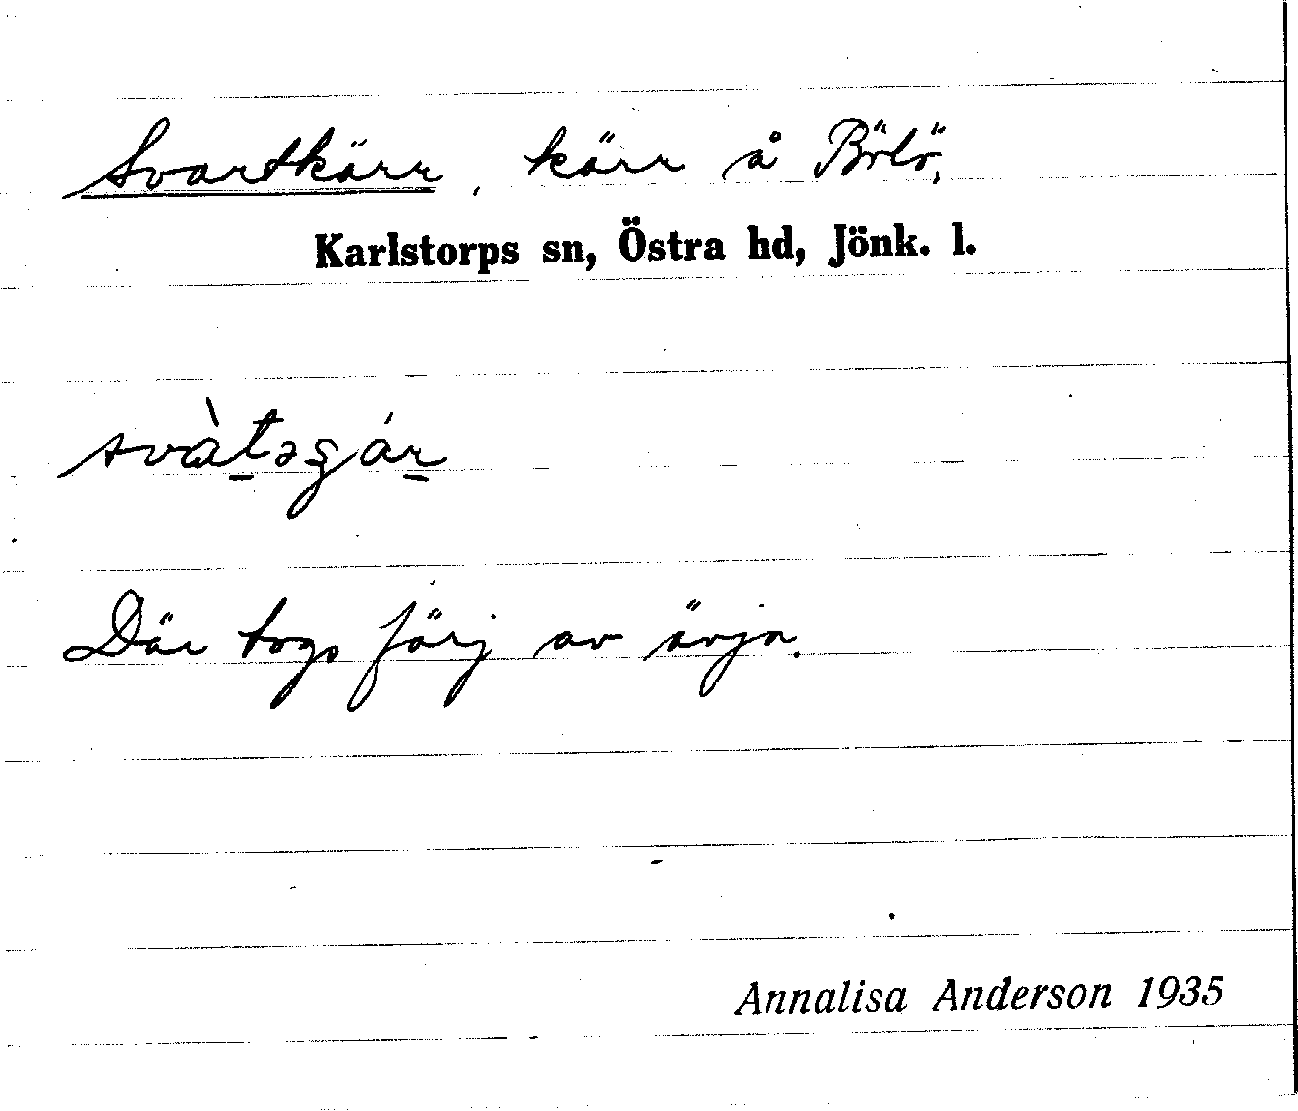 Svartkärr, kärr å Bölö,
Karlstorps sn, Östra hd, Jönk. l.
Där togs färj av ävja.
Annalisa Anderson 1935